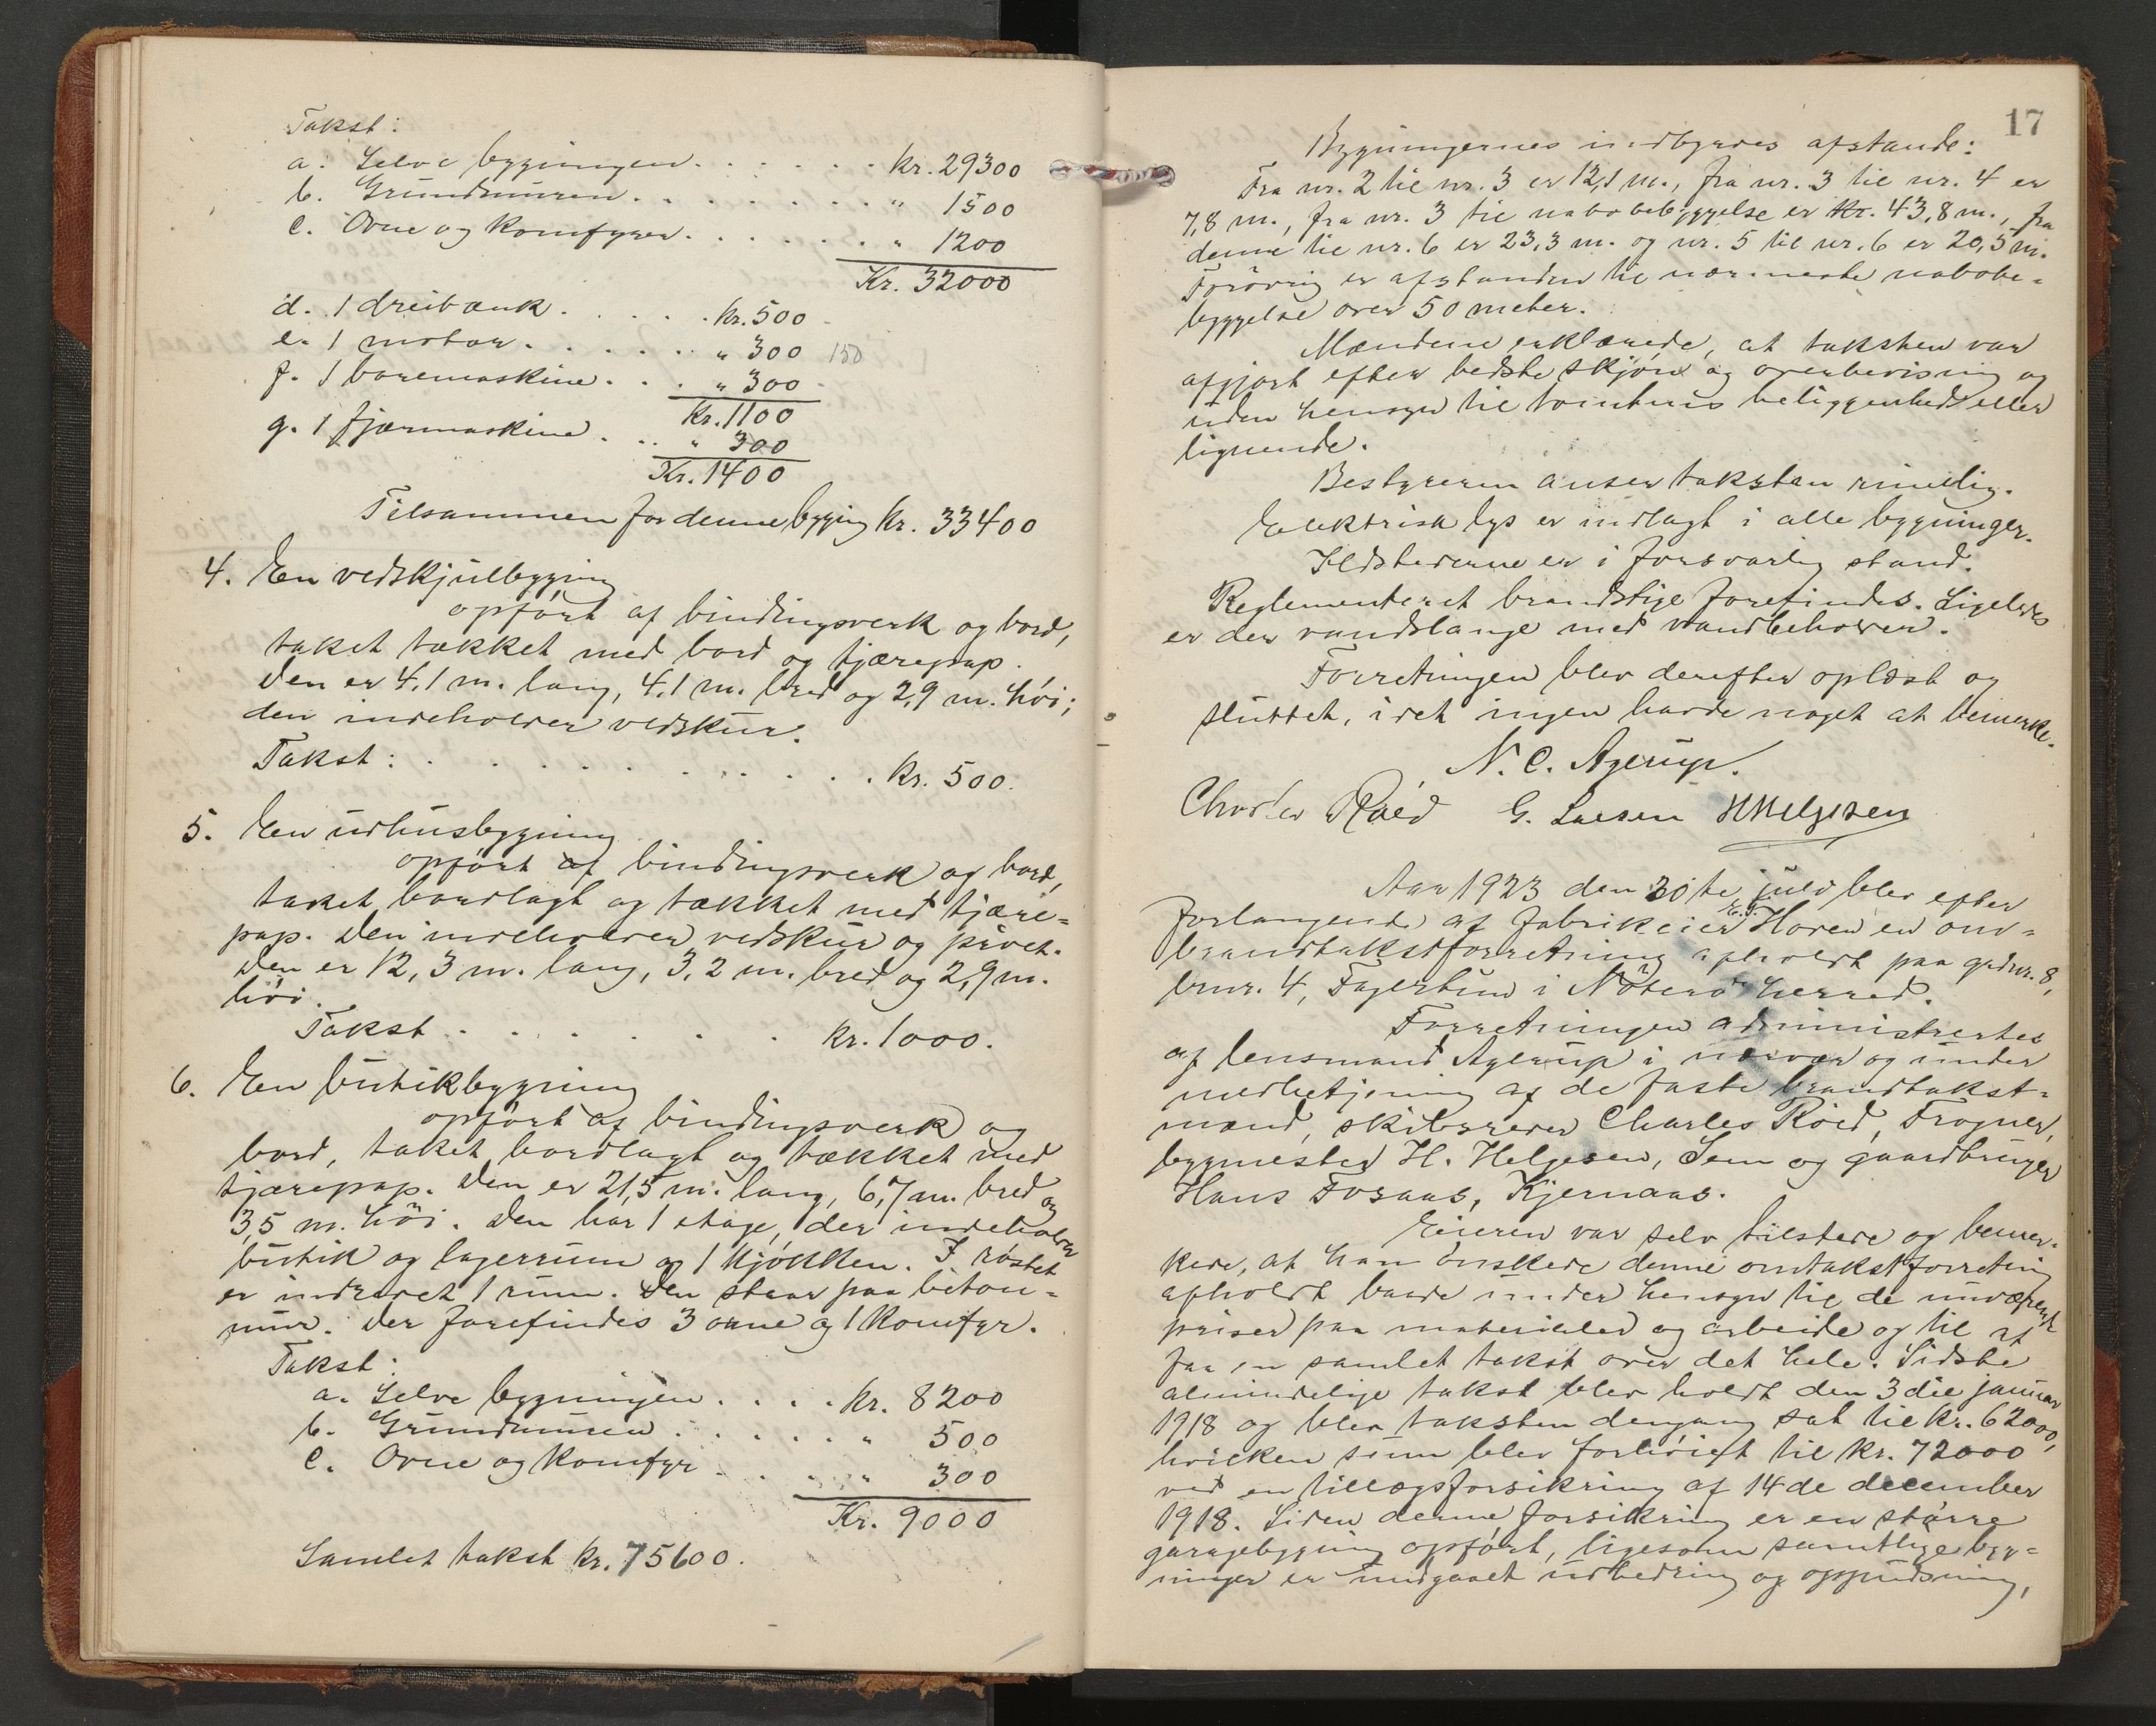 Takst:
a. Selve bygningen . . . . . . kr. 29300
b. Grundmuren . . . . . . . . " 1500
c. Ovne og komfyrer . . . . . . " 1200
Kr. 32000
d. 1 dreibænk . . . . . kr. 500
e. 1 motor . . . . . . " 300 150
f. 1 boremaskine . . . . " 300
Kr. 1100
g. 1 fjærmaskine . . . " 300
Kr. 1400
Tilsammen for denne bygging kr. 33400
4. En vedskjulbygging
opført af bindingsverk og bord,
taket tækket med bord og tjærepap.
Den er 4,1 m. lang, 4,1 m. bred og 2,9 m. høi;
den indeholder vedskur.
Takst: . . . . . . . . . . . kr. 500.
5. En udhusbygning
opført af bindingsverk og bord,
taket bordlagt og tækket med tjære=
pap. Den indeholder vedskur og privet.
Den er 12,3 m. lang, 3,2 m. bred og 2,9 m.
høi.
Takst . . . . . . . . kr. 1000.
6. En butikbygning
opført af bindingsverk og
bord, taket bordlagt og tækket med
tjærepap. Den er 21,5 m. lang, 6,7 m. bred og
3,5 m. høi. Den har 1 etage, der indeholder
butik og lagerrum og 1 kjøkken. I røstet
er indredet 1 rum. Den staar paa beton=
mur. Der forefindes 3 ovne og 1 komfyr.
Takst:
a. Selve bygningen . . . . kr. 8200
b. Grundmuren . . . . . . " 500
c. Ovne og komfyr . . . . " 300
Kr. 9000
Samlet takst kr. 75600.
17
Bygningernes indbyrdes afstande:
Fra nr. 2 til nr. 3 er 12,1 m., fra nr. 3 til nr. 4 er
7,8 m., fra nr. 3 til nabobebyggelse er kr. 43,8 m., fra
denne til nr. 6 er 23,3 m. og nr. 5 til nr. 6 er 20,5 m.
Forøvrig er afstanden til nærmeste nabobe=
byggelse over 50 meter.
Mændene erklærede, at taksten var
afgjort efter bedste skjøn og overbevisning og
uden hensyn til tomtens beliggenhed eller
lignende.
Bestyreren anser taksten rimelig.
Elektrisk lys er indlagt i alle bygninger.
Ildstederne er i forsvarlig stand.
Reglementeret brandstige forefindes. Ligeledes
er der vandslange med vandbeholder.
Forretningen blev derefter oplæst og
sluttet, idet ingen havde noget at bemerke.
N. C. Agerup.
Charles Røed G. Larsen HHelgesen
Aar 1923 den 30te juli blev efter
forlangende af fabrikeier Horen en om=
brandtakstforretning afholdt paa gdnr. 8,
brnr. 4, Fagertun i Nøterø herred.
Forretningen administrertes
af lensmand Agerup i nærvær og under
medbetjening af de faste brandtakst=
mænd, skibsreder Charles Røed, Trogner,
bygmester H. Helgesen, Sem og gaardbruger
Hans Fosaas, Kjernaas.
Eieren var selv tilstede og bemer=
kede, at han ønskede denne omtakstforretning
afholdt baade under hensyn til de nuværende
priser paa materialer og arbeide og til at
faa en samlet takst over det hele. Sidste
almindelige takst blev holdt den 3die januar
1918 og blev taksten dengang sat til kr. 62000,
hvilken sum blev forhøiet til kr. 72000
ved en tillægsforsikring af 14de december
1918. Siden denne forsikring er en større
garagebygging opført, ligesom samtlige byg=
ninger er undgaaet udbedring og oppudsning,